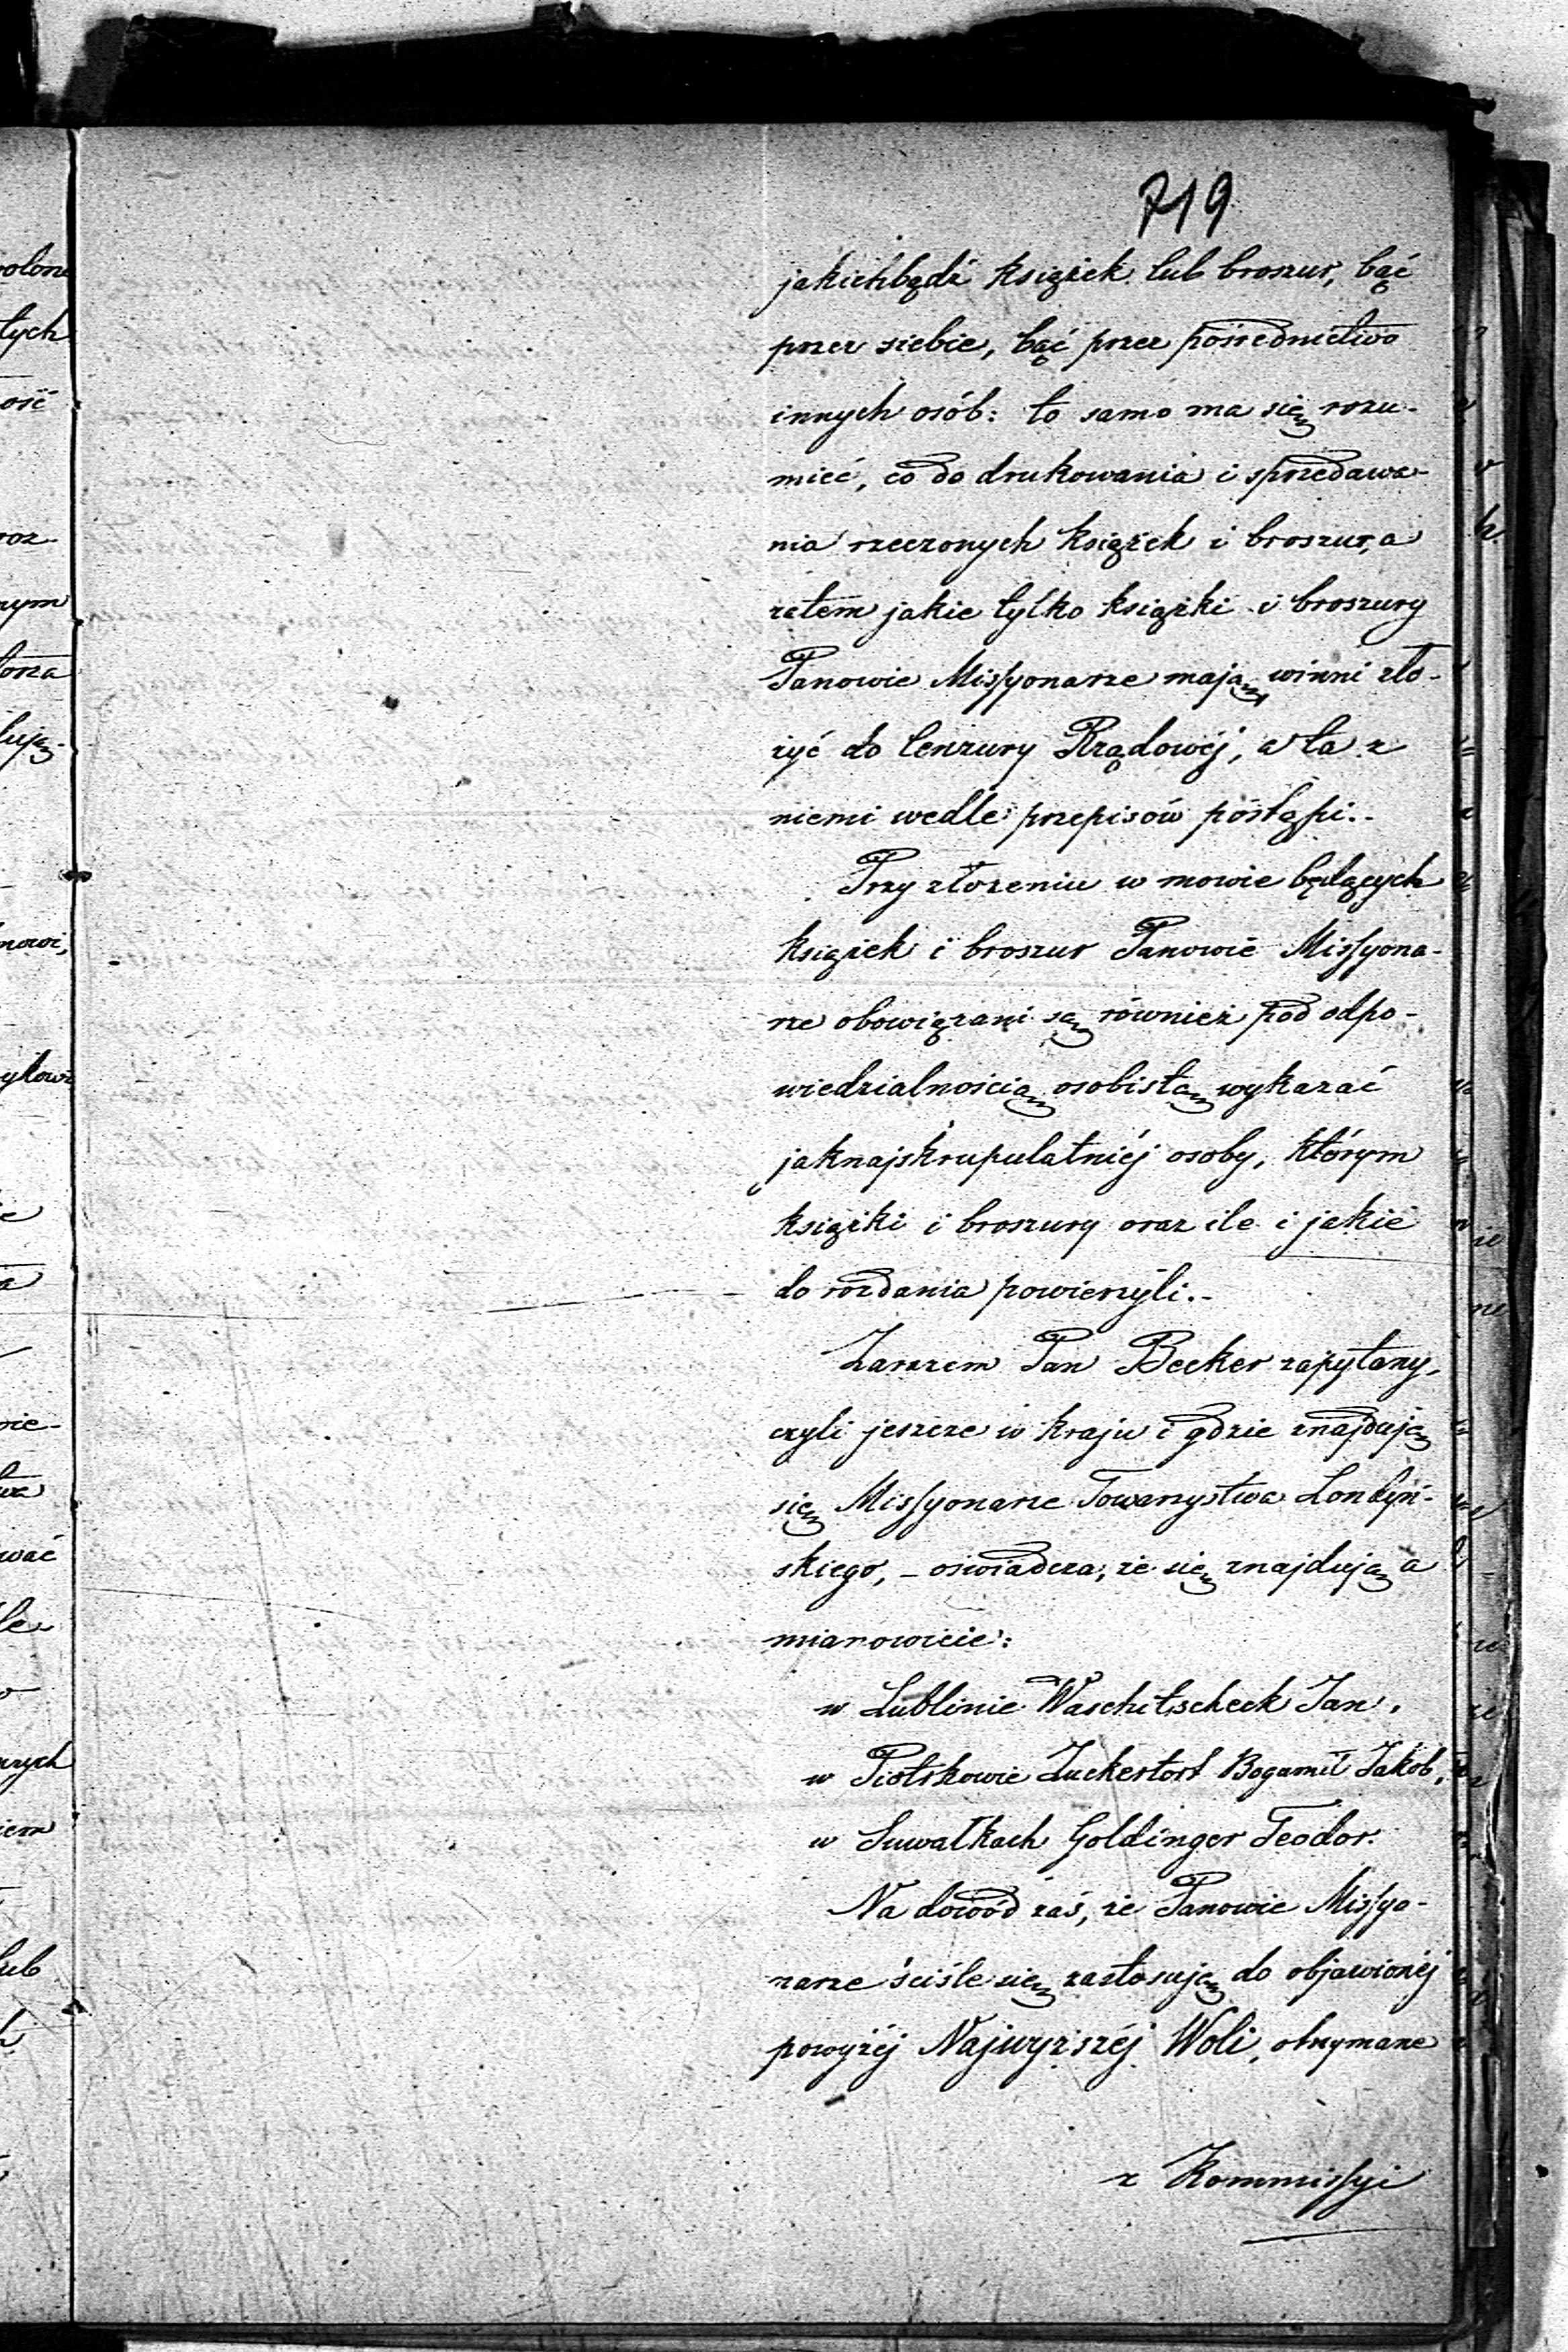 719
jakichbądź książek lub broszur, bąć
przez siebie, bąć przez pośrednictwo
innych osób: to samo ma się rozu-
mieć, co do drukowania i sprzedawa-
nia rzeczonych książek i broszur, a
zatem jakie tylko książki i broszury
Panowie Missyonarze mają, winni zło-
żyć do Cenzury Rządowéj, a ta z
niemi wedle przepisów postąpi.-
Przy złożeniu w mowie będących
książek i broszur Panowie Missyona-
rze obowiązani są również pod odpo-
wiedzialnością osobistą wykazać
jaknajskrupulatniéj osoby, którym
książki i broszury oraz ile i jakie
do rozdania powierzyli.-
Zarazem Pan Becker zapytany,
czyli jeszcze w kraju i gdzie znajdują
się Missyonarze Towarzystwa Londyń-
skiego, - oświadcza, że się znajdują a
mianowicie:
w Lublinie Waschitscheck Jan.
w Piotrkowie Zuckertort Bogumił Jakób,
w Suwałkach Goldinger Teodor.
Na dowód zaś, że Panowie Missyo-
narze ściśle się zastosują do objawionéj
powyżéj Najwyższéj Woli, otrzymane
z Kommissyi